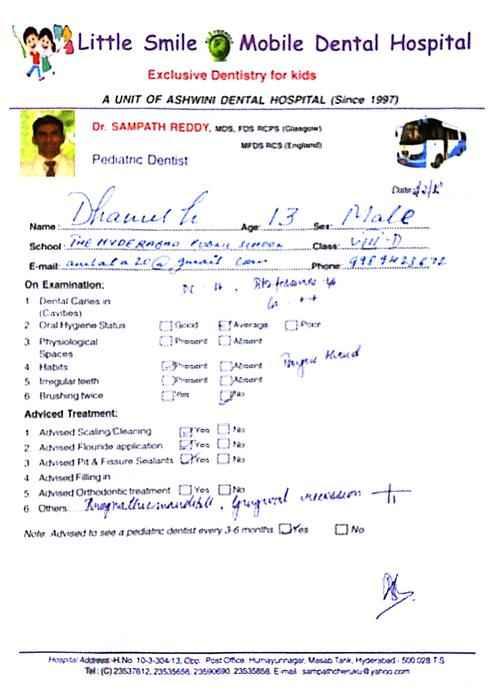 Little Smile Mobile Dental Hospital
Exclusive Dentistry for kids
A UNIT OF ASHWINI DENTAL HOSPITAL (Since 1997)
Dr. SAMPATH REDDY, MDS, FDS RCPS (Glasgow)
MFDS RCS (England)
Pediatric Dentist
Date:
Name: Dhanush Age: 13 Sex: Male
School: THE HYDERABAD PUBLIC SCHOOL Class: VIII-D
E-mail: @gmail.com Phone:
On Examination:
1 Dental Caries in
(Cavities)
2 Oral Hygiene Status Good Average Poor
3 Physiological Present Absent
Spaces
4 Habits Present Absent
5 Irregular teeth Present Absent
6 Brushing twice Yes No
Adviced Treatment:
1 Advised Scaling/Cleaning Yes No
2 Advised Flouride application Yes No
3 Advised Pit & Fissure Sealants Yes No
4 Advised Filling in
5 Advised Orthodontic treatment Yes No
6 Others Gingival recession
Note: Advised to see a pediatric dentist every 3-6 months Yes No
Hospital Address -H.No. 10-3-304-13, Opp. Post Office, Humayunnagar, Masab Tank, Hyderabad - 500 028 T.S
Tel: (C) 23537612, 23535656, 23590690, 23535858, E-mail: sampathcheruku@yahoo.com